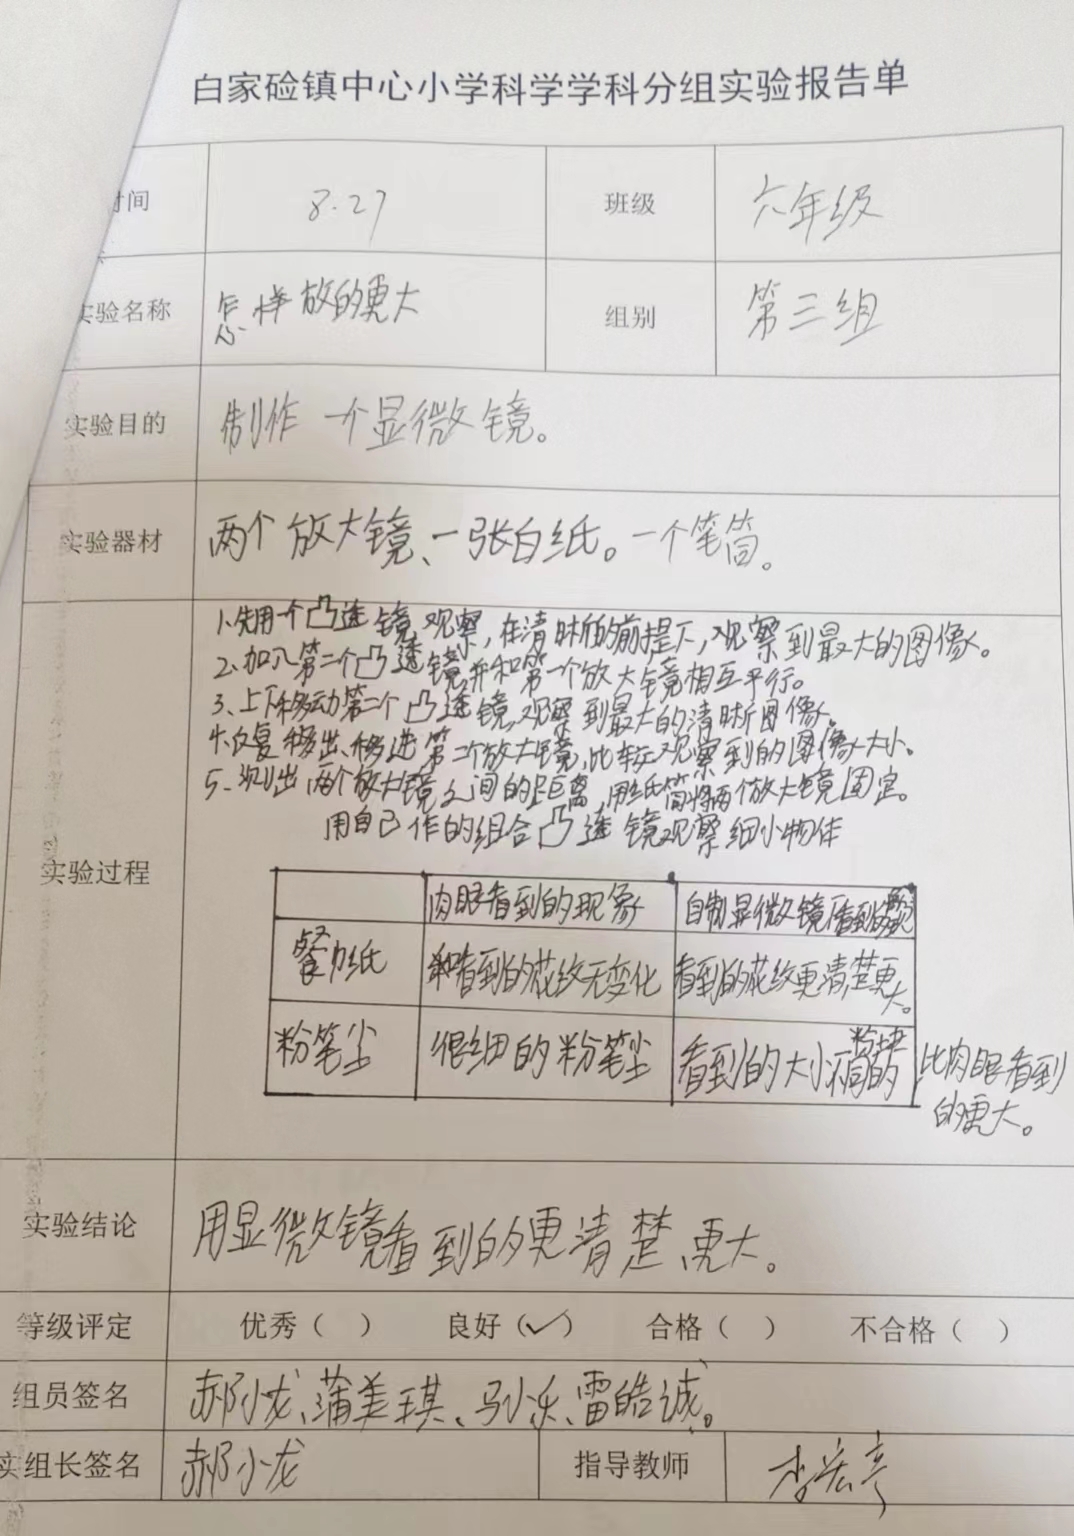 白家硷镇中心小学科学学科分组实验报告单
时间 8.27 班级 六年级
实验名称 怎样放的更大 组别 第三组
实验目的 制作一个显微镜。
实验器材 两个放大镜、一张白纸。一个笔筒。
实验过程
1、先用一个凸透镜观察,在清晰的前提下,观察到最大的图像。
2、加入第二个凸透镜,并和第一个放大镜相互平行。
3、上下移动第二个凸透镜,观察到最大的清晰图像。
4、反复移出、移进第二个放大镜,比较观察到的图像大小。
5、测出两个放大镜之间的距离,用纸筒将两个放大镜固定。
用自己作的组合凸透镜观察细小物体
肉眼看到的现象 自制显微镜看到的现象
餐巾纸 看到的花纹无变化 看到的花纹更清楚更大。
粉笔尘 很细的粉笔尘 看到的大小不同的粉块 比肉眼看到
的更大。
实验结论 用显微镜看到的更清楚、更大。
等级评定 优秀( ) 良好(✓) 合格( ) 不合格( )
组员签名 郝小龙、蒲美琪、马小乐、雷皓诚。
实组长签名 郝小龙 指导教师 李宏亮